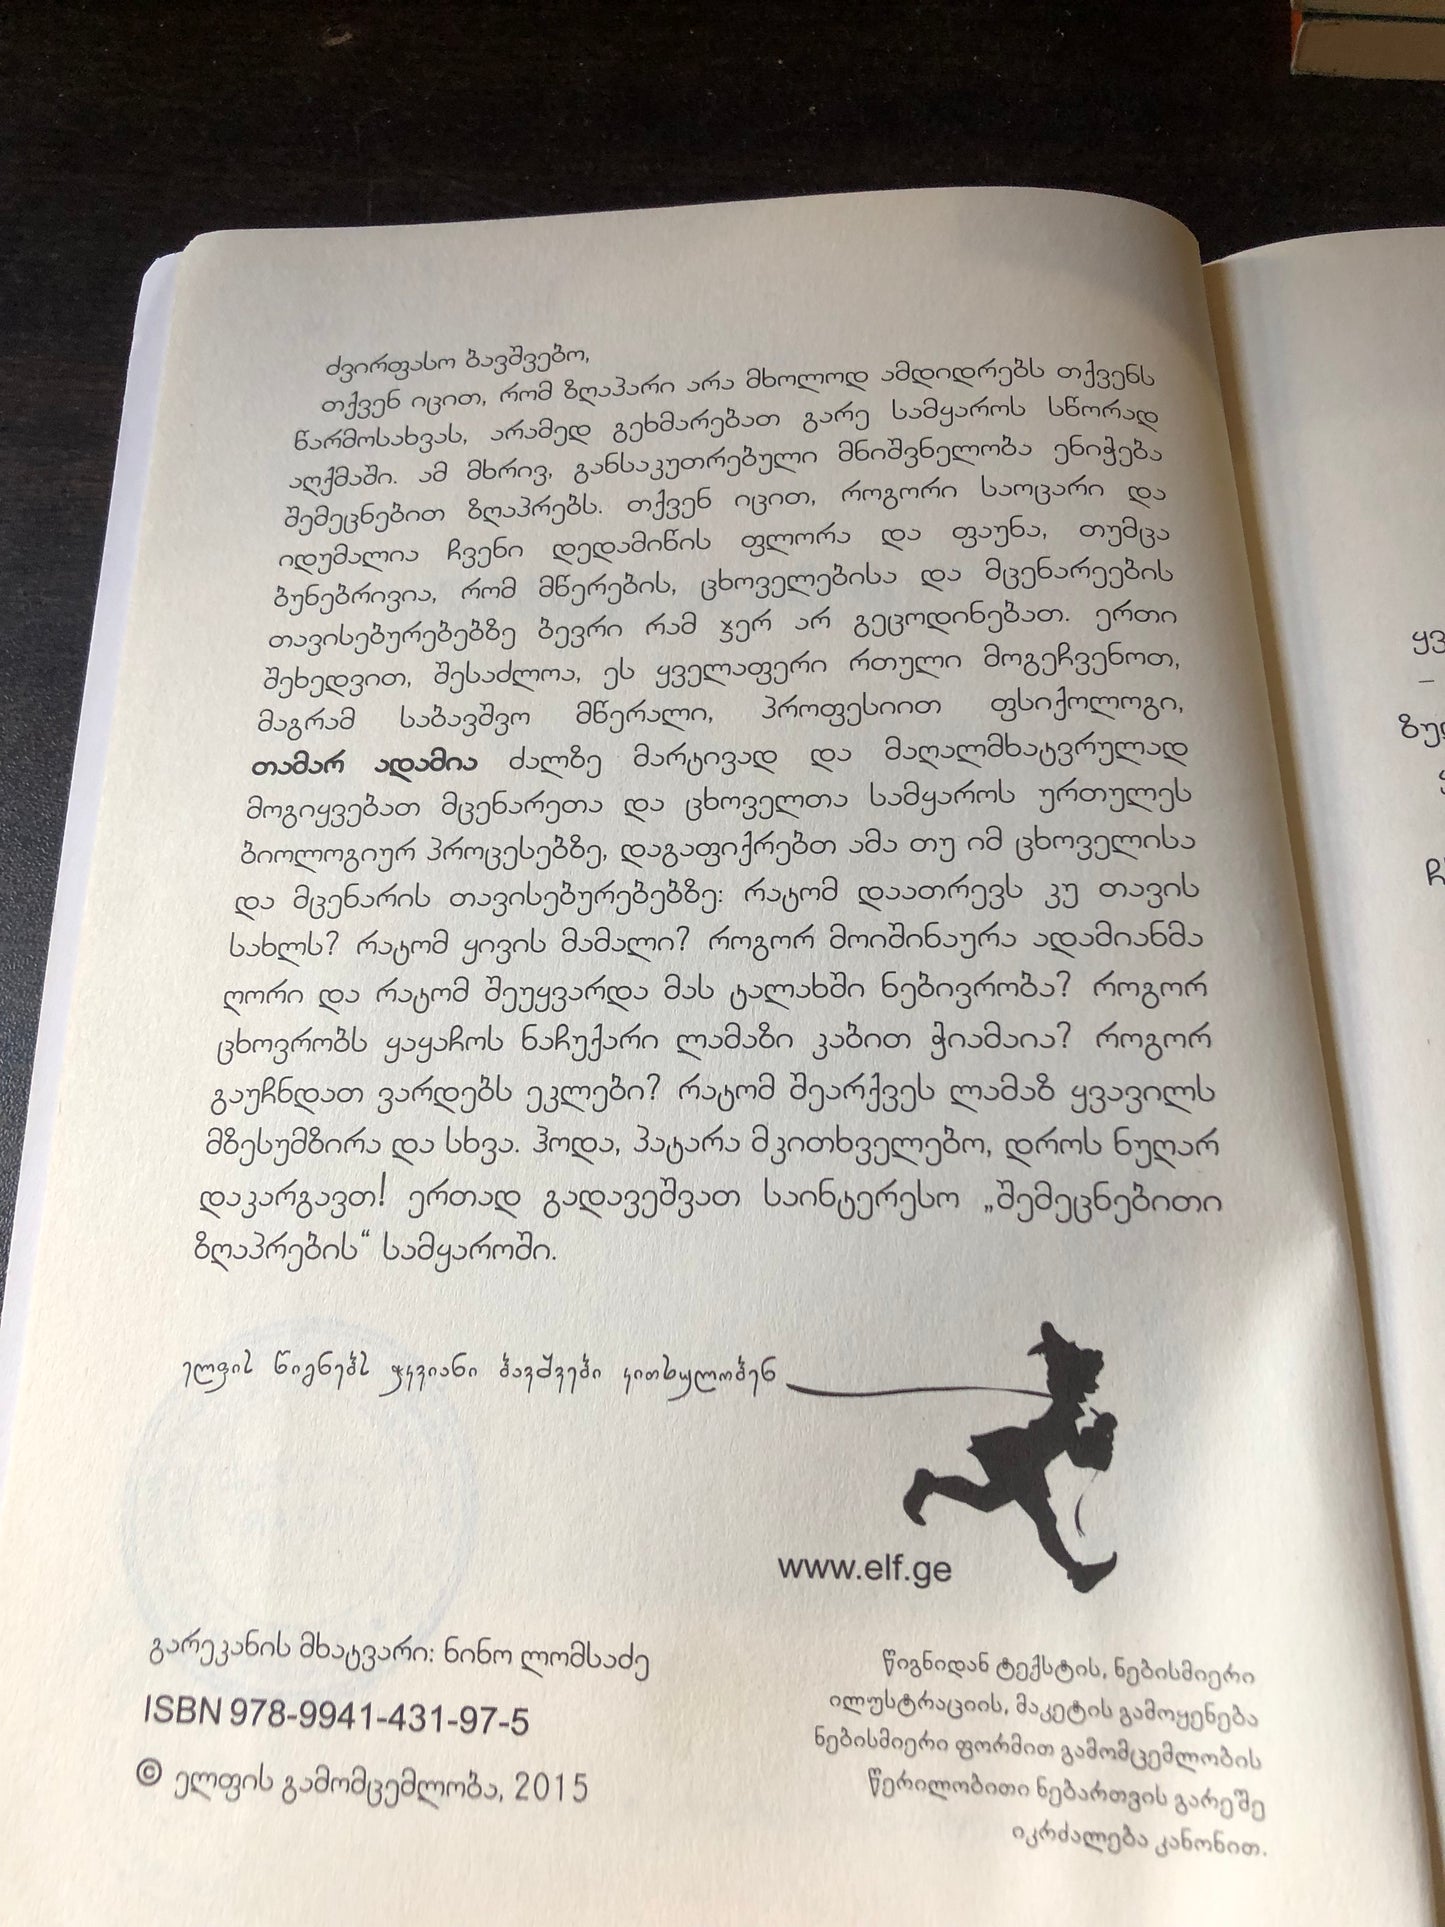 ძვირფასო ბავშვებო,
თქვენ იცით, რომ ზღაპარი არა მხოლოდ ამდიდრებს თქვენს
წარმოსახვას, არამედ გეხმარებათ გარე სამყაროს სწორად
აღქმაში. ამ მხრივ, განსაკუთრებული მნიშვნელობა ენიჭება
შემეცნებით ზღაპრებს. თქვენ იცით, როგორი საოცარი და
იდუმალია ჩვენი დედამიწის ფლორა და ფაუნა, თუმცა
ბუნებრივია, რომ მწერების, ცხოველებისა და მცენარეების
თავისებურებებზე ბევრი რამ ჯერ არ გეცოდინებათ. ერთი
შეხედვით, შესაძლოა, ეს ყველაფერი რთული მოგეჩვენოთ,
მაგრამ საბავშვო მწერალი, პროფესიით ფსიქოლოგი,
თამარ ადამია ძალზე მარტივად და მაღალმხატვრულად
მოგიყვებათ მცენარეთა და ცხოველთა სამყაროს ურთულეს
ბიოლოგიურ პროცესებზე, დაგაფიქრებთ ამა თუ იმ ცხოველისა
და მცენარის თავისებურებებზე: რატომ დაათრევს კუ თავის
სახლს? რატომ ყივის მამალი? როგორ მოიშინაურა ადამიანმა
ღორი და რატომ შეუყვარდა მას ტალახში ნებივრობა? როგორ
ცხოვრობს ყაყაჩოს ნაჩუქარი ლამაზი კაბით ჭიამაია? როგორ
გაუჩნდათ ვარდებს ეკლები? რატომ შეარქვეს ლამაზ ყვავილს
მზესუმზირა და სხვა. ჰოდა, პატარა მკითხველებო, დროს ნუღარ
დაკარგავთ! ერთად გადავეშვათ საინტერესო „შემეცნებითი
ზღაპრების“ სამყაროში.
ელფის წიგნებს ჭკვიანი ბავშვები კითხულობენ
www.elf.ge
გარეკანის მხატვარი: ნინო ლომსაძე
ISBN 978-9941-431-97-5
© ელფის გამომცემლობა, 2015
წიგნიდან ტექსტის, ნებისმიერი
ილუსტრაციის, მაკეტის გამოყენება
ნებისმიერი ფორმით გამომცემლობის
წერილობითი ნებართვის გარეშე
იკრძალება კანონით.